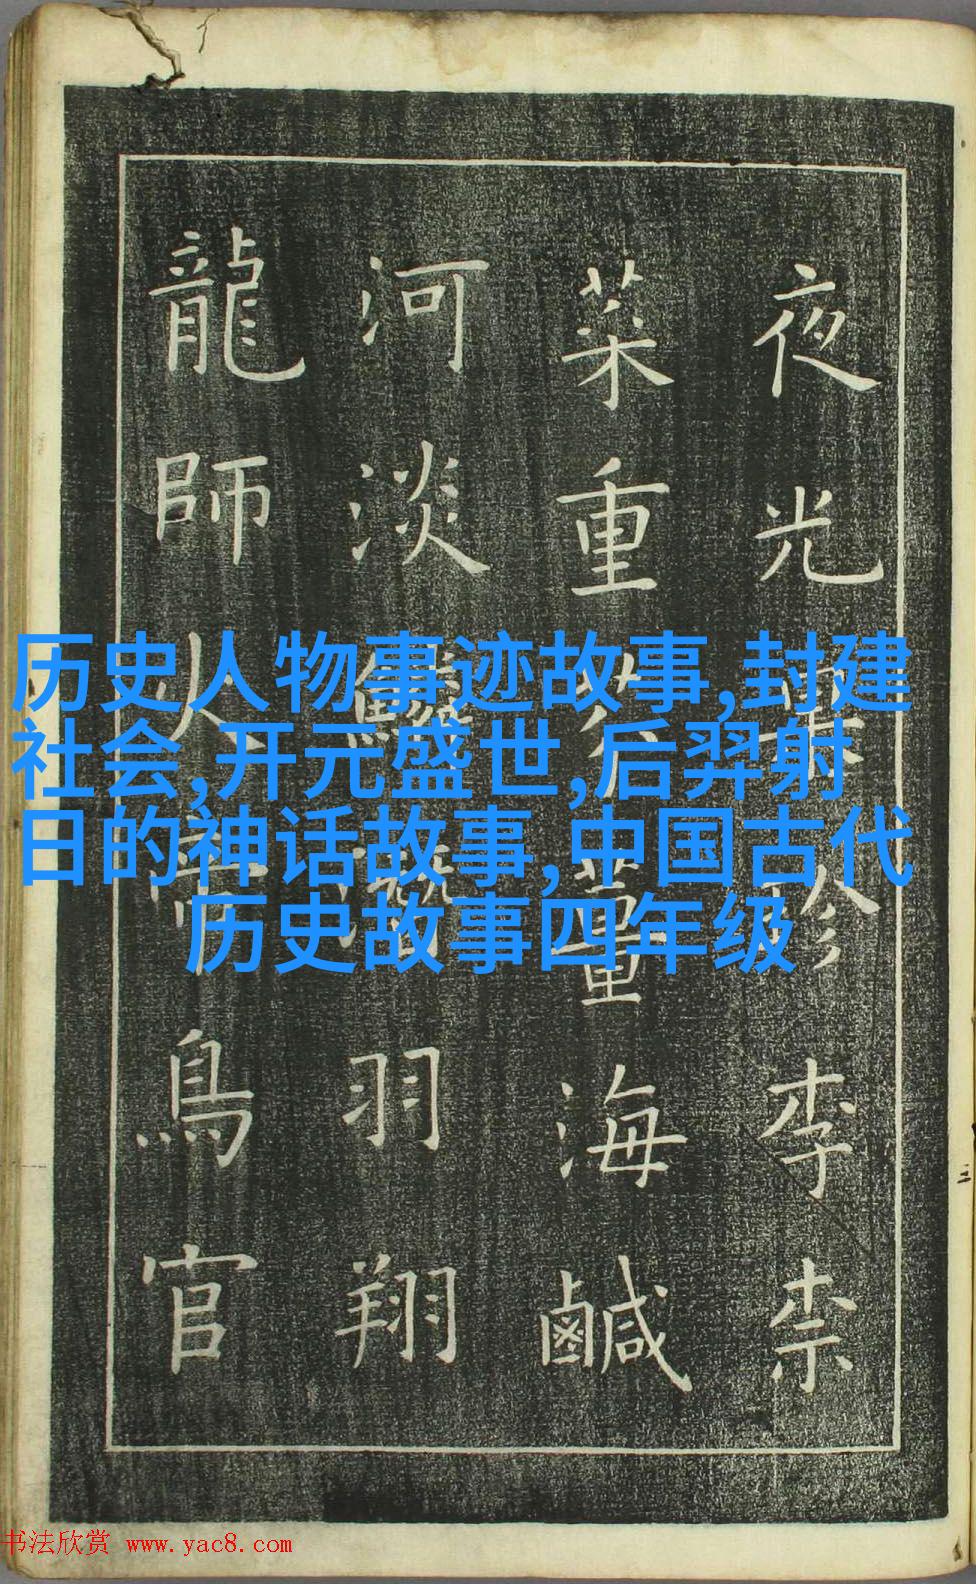 夜光珍李柰
菜重芥薑海鹹
河淡鱗潛羽翔
龍師火帝鳥官
历史人物事迹故事,封建
社会,开元盛世,后羿射
日的神话故事,中国古代
历史故事四年级
书法欣赏 www.yac8.com